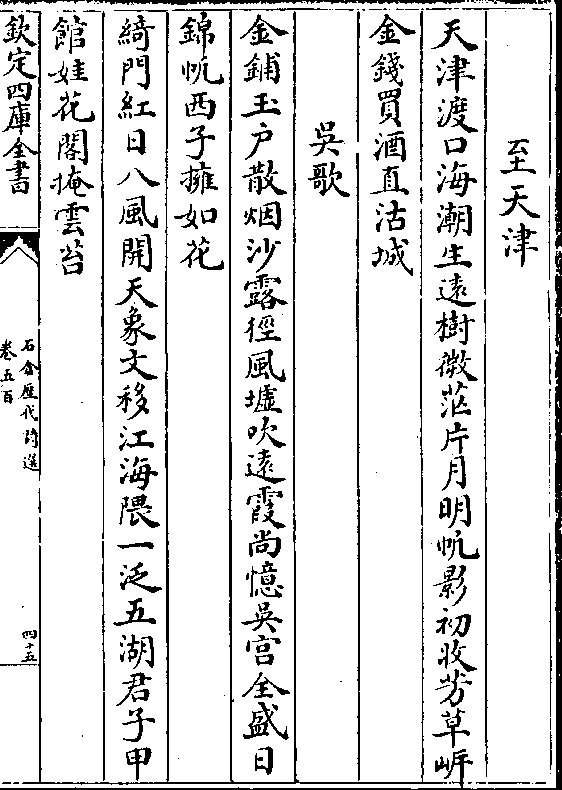 至天津
天津渡口海潮生遠樹微茫片月明帆影初收芳草岸
金錢買酒直沽城
吳歌
金鋪玉户散烟沙露徑風墟吹遠霞尚憶吳宫全盛日
錦帆西子擁如花
綺門紅日八風開天象文移江海隈一泛五湖君子甲
館娃花閣掩雲苔
欽定四庫全書
石倉歷代詩選
卷五百
四十五